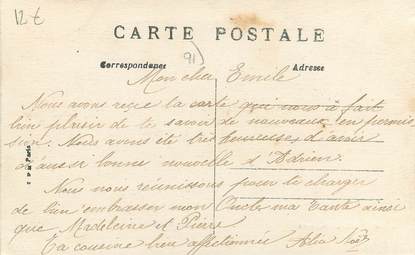 12 €
CARTE POSTALE
91
Correspondance Adresse
Mon cher Emile
Nous avons reçu la carte qui nous a fait
bien plaisir de te savoir de nouveau en permis
sion. Nous avons été très heureuses d'avoir
d'aussi bonne nouvelle d Adrien.
Nous nous réunissons pour te charger
de bien embrasser mon Oncle ma Tante ainsi
que Madeleine et Pierre
Ta cousine bien affectionnée